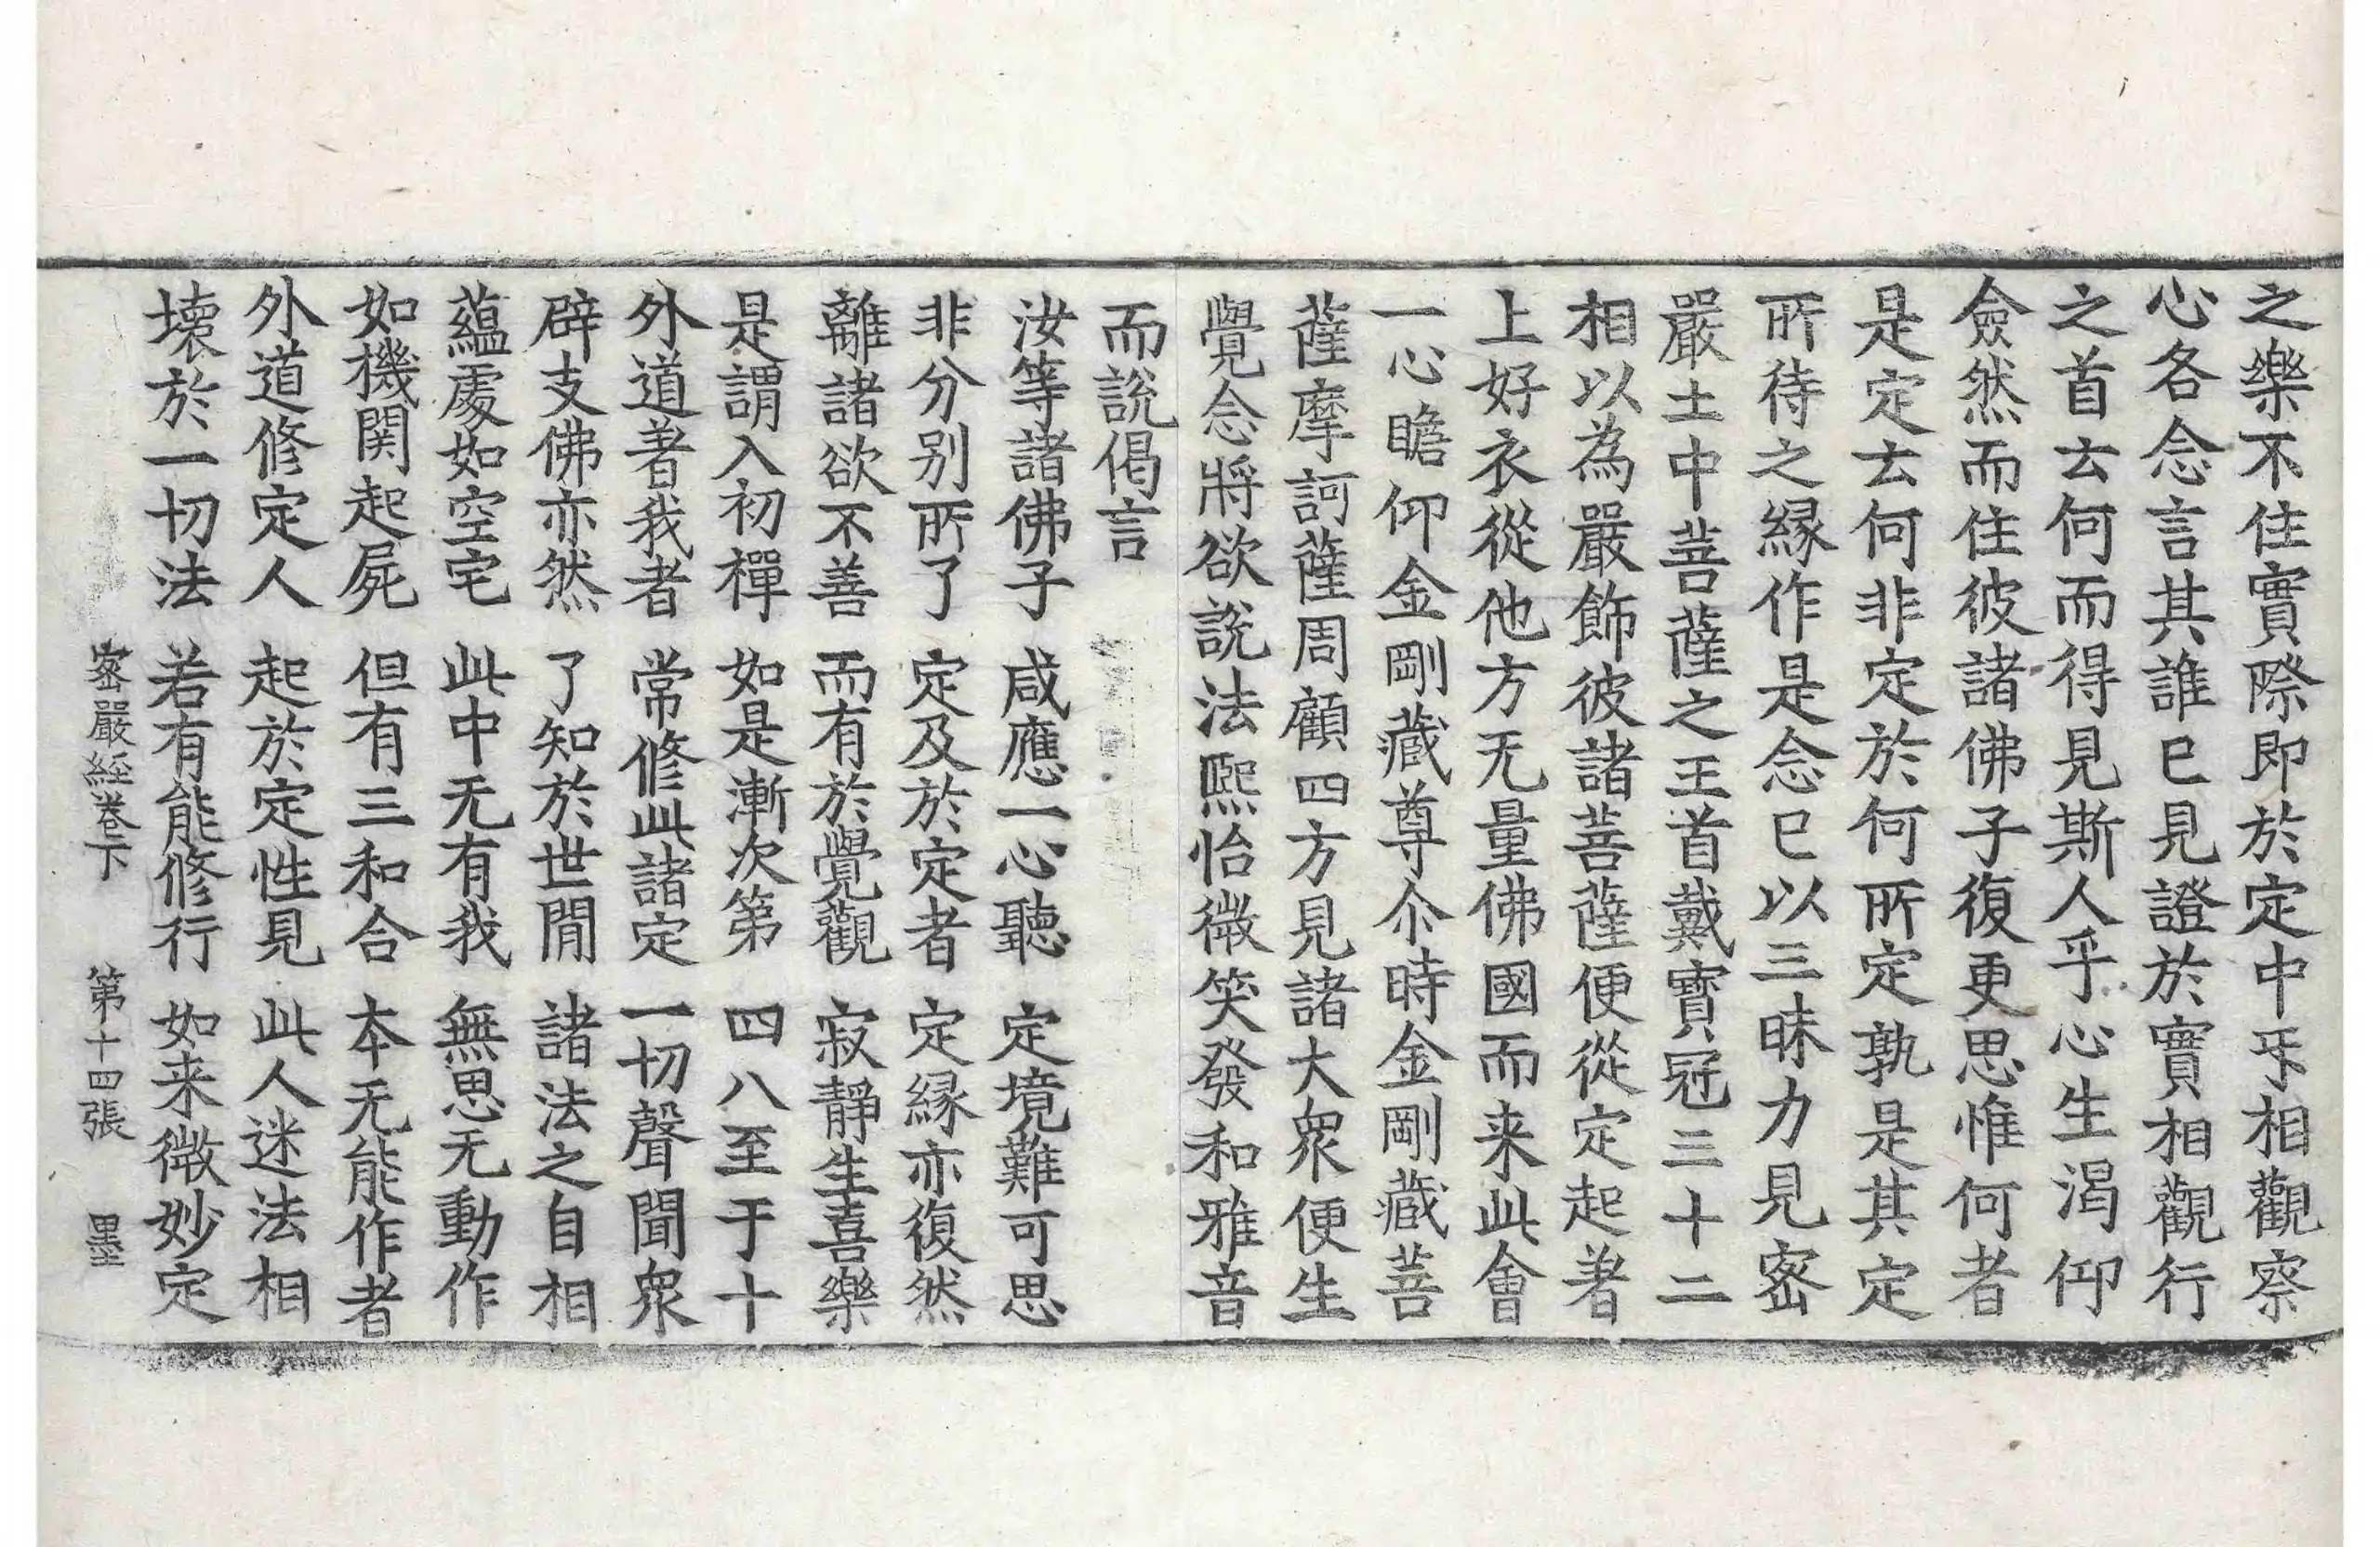 之樂不住實際即於定中乎相觀察
心各念言其誰已見證於實相觀行
之首云何而得見斯人乎心生渴仰
僉然而住彼諸佛子復更思惟何者
是定云何非定於何所定孰是其定
所待之緣作是念已以三昧力見密
嚴土中菩薩之王首戴寶冠三十二
相以為嚴飾彼諸菩薩便從定起著
上好衣從他方无量佛國而来此會
一心瞻仰金剛藏尊尒時金剛藏菩
薩摩訶薩周顧四方見諸大眾便生
覺念將欲說法熙怡微笑發和雅音
而說偈言
汝等諸佛子 咸應一心聽 定境難可思
非分別所了 定及於定者 定緣亦復然
離諸欲不善 而有於覺觀 寂靜生喜樂
是謂入初禪 如是漸次第 四八至于十
外道著我者 常修此諸定 一切聲聞眾
辟支佛亦然 了知於世間 諸法之自相
蘊處如空宅 此中无有我 無思无動作
如機関起屍 但有三和合 本无能作者
外道修定人 起於定性見 此人迷法相
壞於一切法 若有能修行 如来微妙定
密嚴經卷下 第十四張 墨